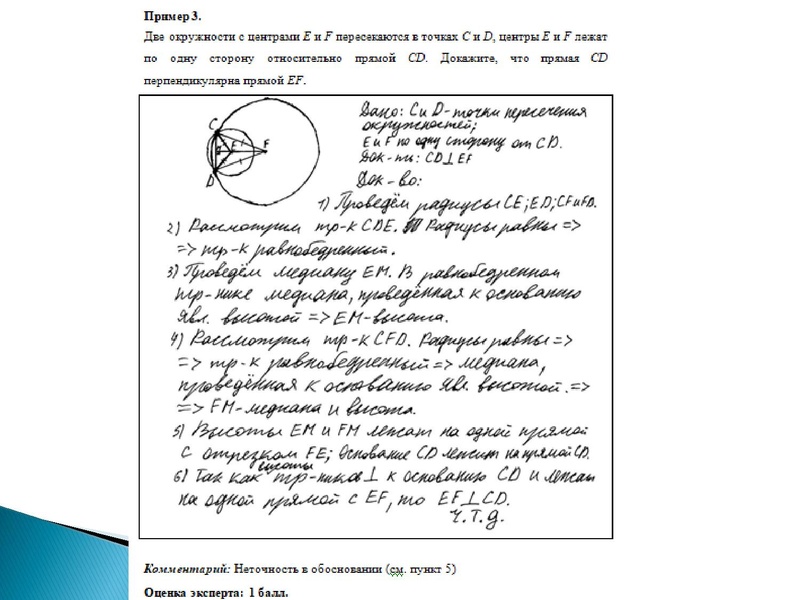 Пример 3.
Две окружности с центрами E и F пересекаются в точках C и D, центры E и F лежат
по одну сторону относительно прямой CD. Докажите, что прямая CD
перпендикулярна прямой EF.
C
E
F
D
Дано: C и D - точки пересечения
окружностей;
E и F по одну сторону от CD.
Док-ть: CD⊥EF
Док-во:
1) Проведём радиусы CE; ED; CF и FD.
2) Рассмотрим тр-к CDE. Радиусы равны =>
=> тр-к равнобедренный.
3) Проведём медиану EM. В равнобедренном
тр-нике медиана, проведённая к основанию
явл. высотой => EM-высота.
4) Рассмотрим тр-к CFD. Радиусы равны =>
=> тр-к равнобедренный => медиана,
проведённая к основанию явл. высотой. =>
=> FM-медиана и высота.
5) Высоты EM и FM лежат на одной прямой
с отрезком FE; Основание CD лежит на прямой CD.
6) Так как высоты тр-ников ⊥ к основанию CD и лежат
на одной прямой с EF, то EF⊥CD.
Ч.Т.Д.
Комментарий: Неточность в обосновании (см. пункт 5)
Оценка эксперта: 1 балл.